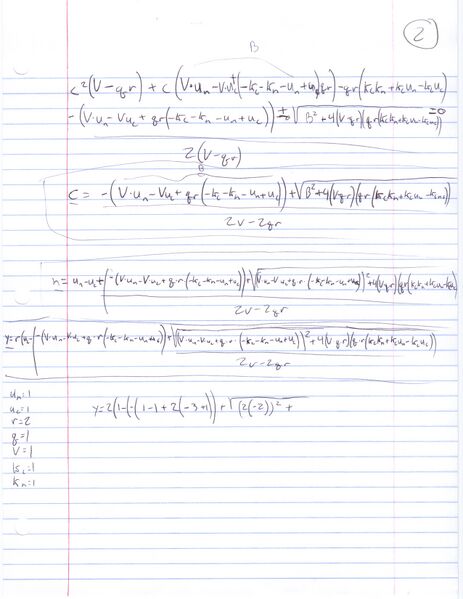 2
B
c²(V-qr) + c(V·u_n - V·u_c + (-k_c-k_n-u_n+u_c)qr) - qr(k_c k_n + k_c u_n - k_c u_c) = 0
-(V·u_n - Vu_c + qr(-k_c-k_n-u_n+u_c)) ± √B²+4(V-qr)(qr(k_c k_n+k_c u_n-k_c u_c))
2(V-qr)
B
c = -(V·u_n - Vu_c + qr(-k_c-k_n-u_n+u_c)) + √B²+4(V-qr)(qr(k_c k_n+k_c u_n-k_c u_c))
2V-2qr
n = u_n-u_c + (-(V·u_n-V·u_c+q·r(-k_c-k_n-u_n+u_c)) + √(V·u_n-V·u_c+q·r·(-k_c-k_n-u_n+u_c))²+4(V-qr)(qr(k_c k_n+k_c u_n-k_c u_c))
2V-2qr
y=r(u_c-(-(V·u_n-V·u_c+q·r(-k_c-k_n-u_n+u_c)) + √(V·u_n-V·u_c+q·r·(-k_c-k_n-u_n+u_c))²+4(V-qr)(q·r(k_c k_n+k_c u_n-k_c u_c))
2V-2qr
u_n=1
u_c=1
r=2
q=1
V=1
k_c=1
k_n=1
y=2(1-(-(1-1+2(-3+1))+√(2(-2))² +